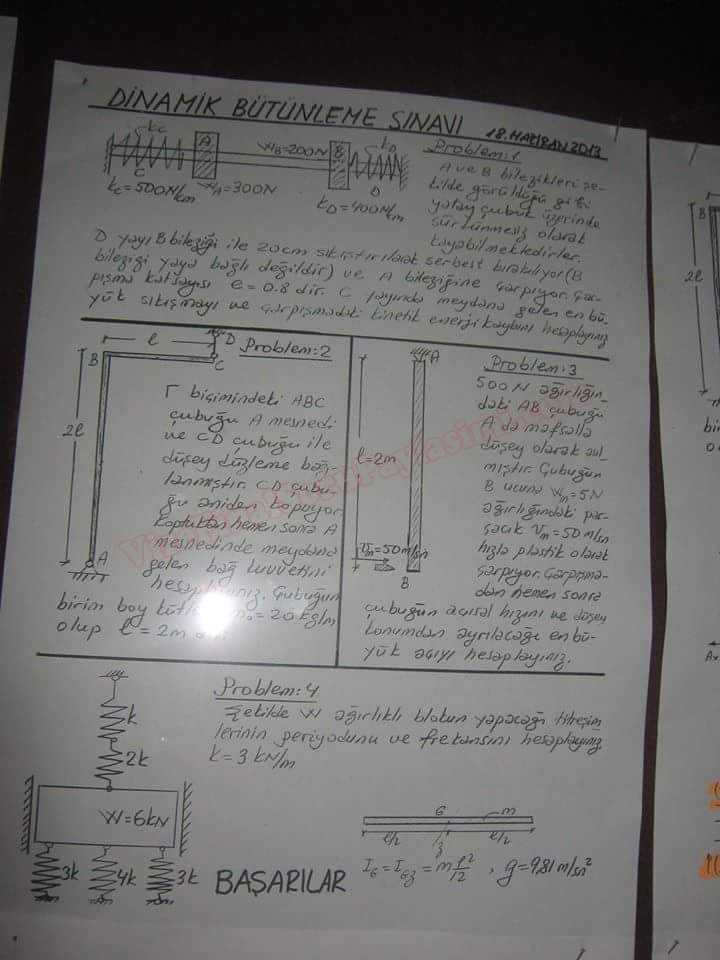 DİNAMİK BÜTÜNLEME SINAVI
18.HAZİRAN 2013
kc
A
WB=200N
B
kD
C
D
kC=500N/cm
WA=300N
kD=400N/cm
Problem:1
A ve B bilezikleri şe-
kilde görüldüğü gibi
yatay çubuk üzerinde
sürtünmesiz olarak
kayabilmektedirler.
D yayı B bileziği ile 20cm sıkıştırılarak serbest bırakılıyor (B
bileziği yaya bağlı değildir) ve A bileziğine çarpıyor. Çar-
pışma katsayısı e=0.8 dir. C yayında meydana gelen en bü-
yük sıkışmayı ve çarpışmadaki kinetik enerji kaybını hesaplayınız
Problem:2
l
D
B
C
2l
A
Γ biçimindeki ABC
çubuğu A mesnedi
ve CD çubuğu ile
düşey düzleme bağ-
lanmıştır. CD çubu-
ğu aniden kopuyor.
Koptuktan hemen sonra A
mesnedinde meydana
gelen bağ kuvvetini
Çubuğun
birim boy = 20 kg/m
olup l = 2m
Problem:3
A
l=2m
Vm=50m/sn
B
500N ağırlığın-
daki AB çubuğu
A da mafsalla
düşey olarak asıl-
mıştır. Çubuğun
B ucuna Wm=5N
ağırlığındaki par-
çacık Vm=50m/sn
hızla plastik olarak
çarpıyor. Çarpışma-
dan hemen sonra
çubuğun açısal hızını ve düşey
konumdan ayrılacağı en bü-
yük açıyı hesaplayınız.
Problem:4
Şekilde W ağırlıklı blokun yapacağı titreşim
lerinin periyodunu ve frekansını hesaplayınız.
k = 3 kN/m
k
2k
W=6kN
3k
4k
3k
G
m
l/2
l/2
IG = IGz = m l²/12 , g=9,81 m/sn²
BAŞARILAR
B
2l
Ax